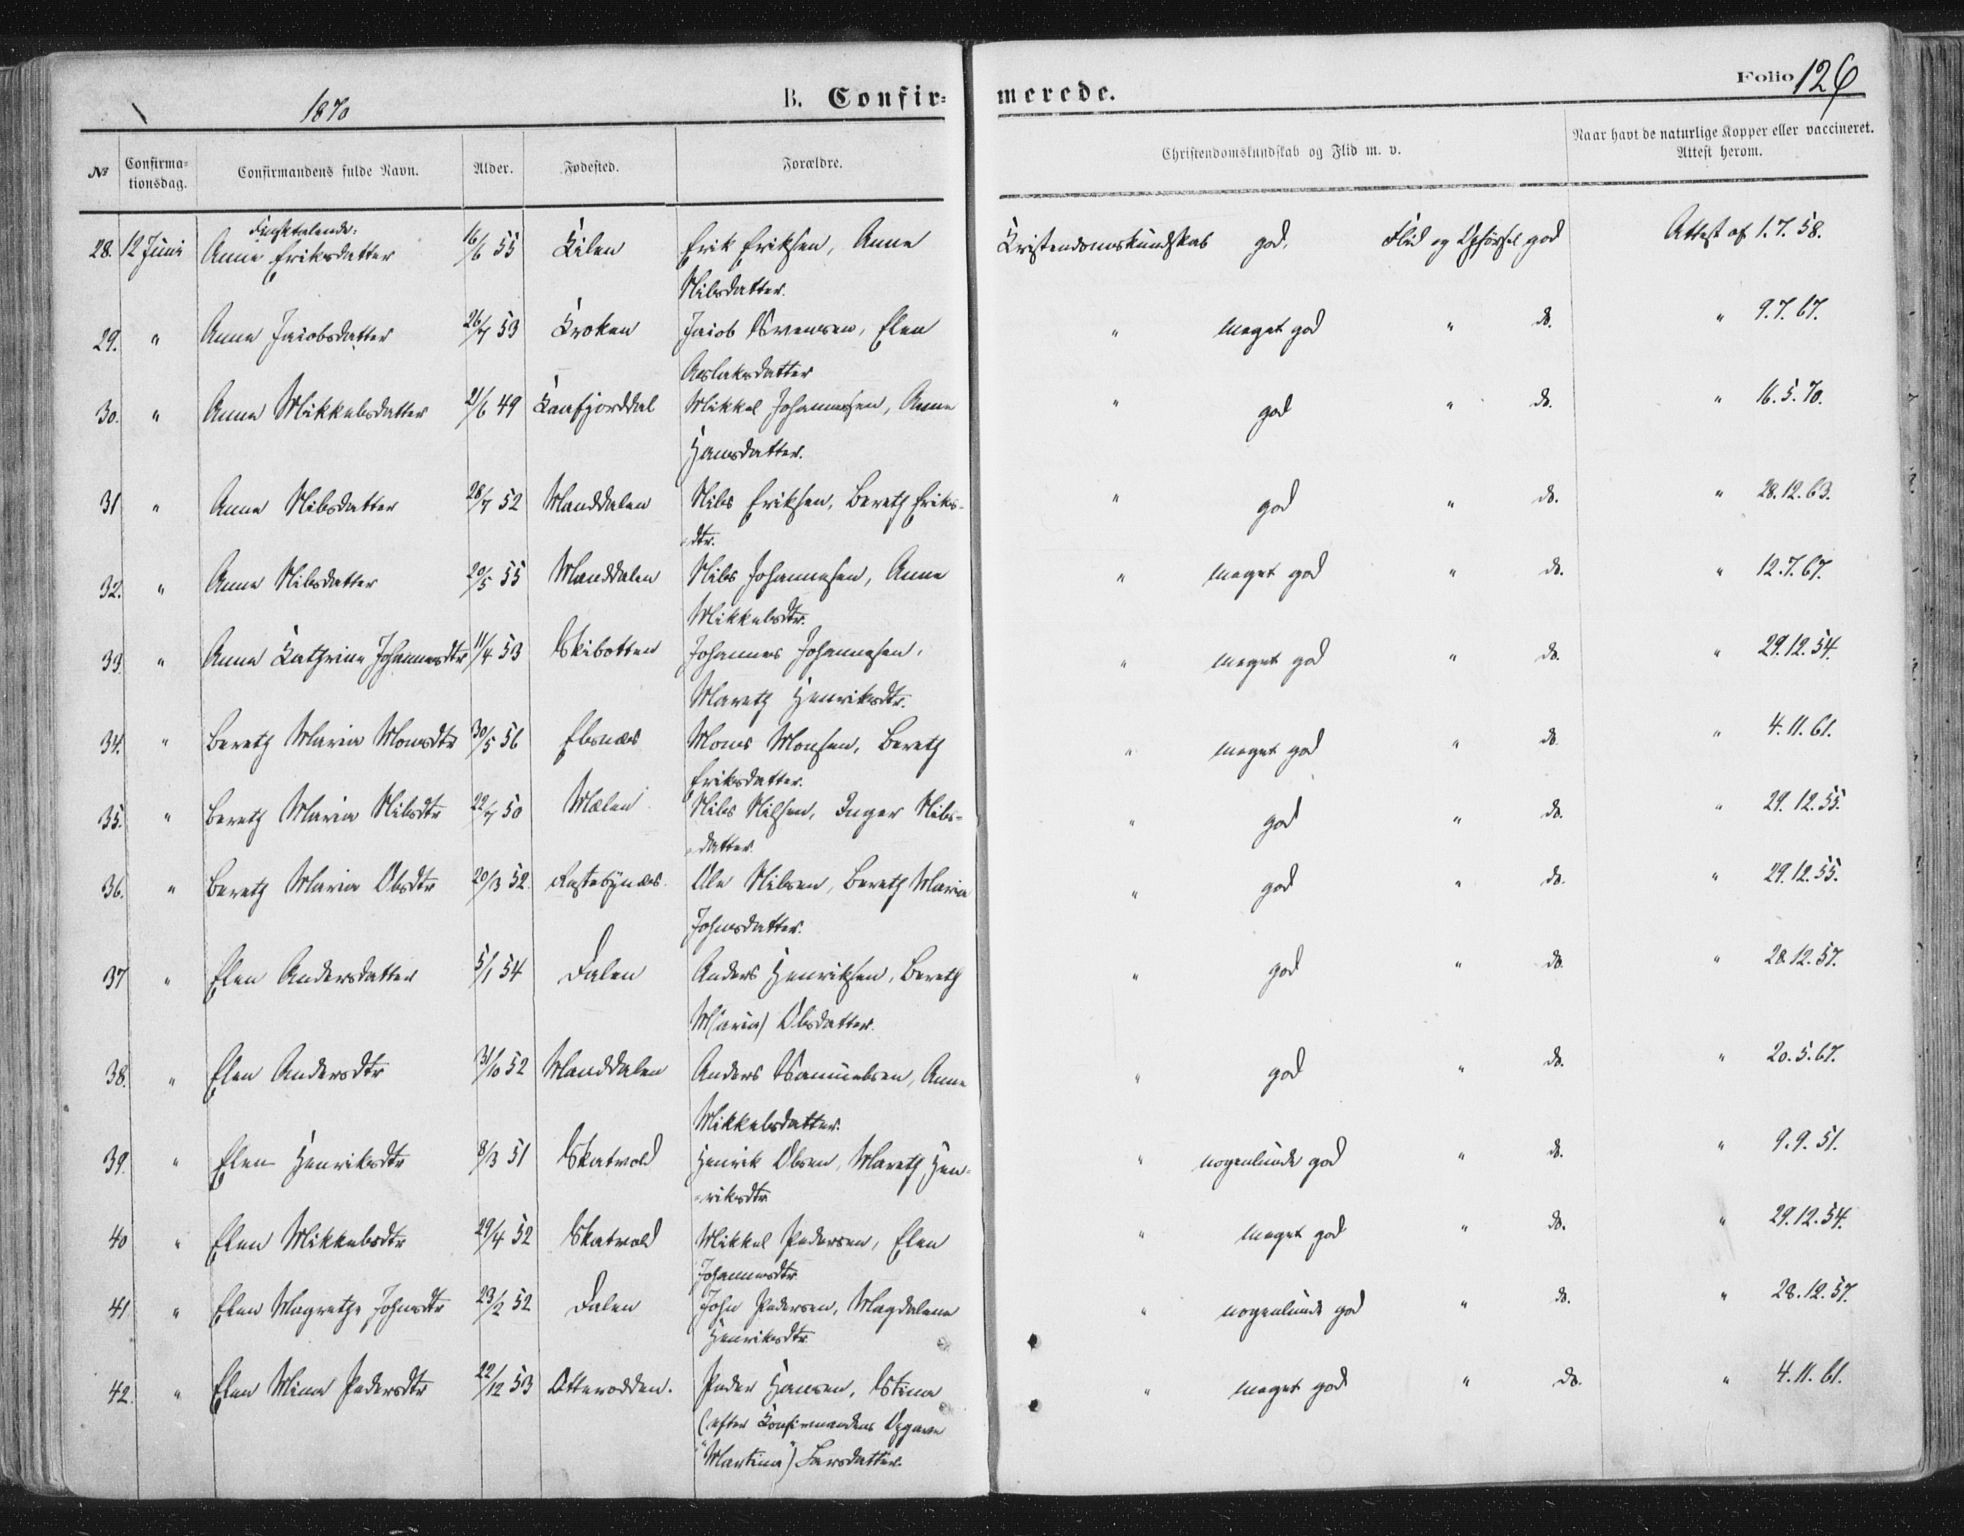 1870
B. Confir=
merede.
Folio 126
№ Confirma=tionsdag. Confirmandens fulde Navn. Alder. Fødested. Forældre. Christendomskundskab og Flid m. v. Naar havt de naturlige Kopper eller vaccineret. Attest herom.
Finsktalende:
28. 12 Juni Anne Eriksdatter 16/6 55 Kilen Erik Eriksen, Anne Kristendomskundskab god, Flid og Opførsel god Attest af 1.7.58.
Nilsdatter.
29. " Anne Jacobsdatter 26/7 53 Kroken Jacob Svensen, Elen " meget god " do. " 9.7.67.
Aslaksdatter
30. " Anne Mikkelsdatter 21/6 49 Kaafjorddal Mikkel Johannesen, Anne " god " do. " 16.5.70.
Hansdatter.
31 " Anne Nilsdatter 28/7 52 Manddalen Nils Eriksen, Bereth Eriks- " god " do. " 28.12.63.
-dtr.
32. " Anne Nilsdatter 20/5 55 Manddalen Nils Johannesen, Anne " meget god " do. " 12.7.67.
Mikkelsdtr.
33. " Anne Kathrine Johannesdtr 11/4 53 Skibotten Johannes Johannesen, " meget god " do. " 29.12.54.
Mareth Henriksdtr.
34. " Bereth Maria Monsdtr 30/5 56 Elsnæs Mons Monsen, Bereth " meget god " do. " 4.11.61.
Eriksdatter.
35. " Bereth Maria Nilsdtr 22/7 50 Mælen Nils Nilsen, Inger Nils- " god " do. " 29.12.55.
-datter.
36. " Bereth Maria Olsdtr 20/3 52. Rastebynæs. Ole Nilsen, Bereth Maria " god " do. " 29.12.55.
Johnsdatter.
37 " Elen Andersdatter 5/1 54 Dalen Anders Henriksen, Bereth " god " do. " 28.12.57.
M(aria) Olsdatter.
38. " Elen Andersdtr 31/10 52 Manddalen Anders Samuelsen, Anne " god " do. " 20.5.67.
Mikkelsdatter.
39. " Elen Henriksdtr 8/3 51 Skatvold Henrik Olsen, Mareth Hen- " nogenlunde god " do. " 9.9.51.
-riksdtr
40 " Elen Mikkelsdtr 29/4 52 Skatvold Mikkel Pedersen, Elen " meget god " do. " 29.12.54.
Johannesdtr.
41. " Elen Magrethe Johnsdtr 23/2 52 Dalen John Pedersen, Magdalene " nogenlunde god " do. " 28.12.57.
Henriksdtr.
42. " Elen Mina Pedersdtr 22/12 53 Otterodden. Peder Hansen, Stina " meget god " do. " 4.11.61.
(efter Konfirmandens Opgave
"Martina") Larsdatter.